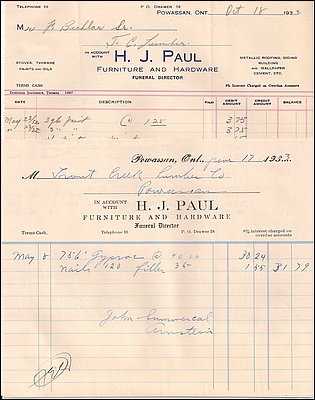 TELEPHONE 16 P. O. DRAWER 58
POWASSAN, ONT Oct 18 1933
M
IN ACCOUNT WITH
H. J. PAUL
STOVES, TINWARE PAINTS AND OILS
FURNITURE AND HARDWARE
FUNERAL DIRECTOR
METALLIC ROOFING, SIDING BUILDING AND WALLPAPER CEMENT, ETC.
TERMS CASH
8% Interest Charged on Overdue Accounts
DATE DESCRIPTION FOLIO DEBIT AMOUNT CREDIT AMOUNT BALANCE
May @ 125 3 75
3 75
Powassan, Ont., June 17 1933
M Trout Creek Lumber Co
Powassan
IN ACCOUNT WITH
H. J. PAUL
FURNITURE AND HARDWARE
Funeral Director
Terms Cash. Telephone 16 P. O. Drawer 58 8% interest charged on overdue accounts
May 8 756' Gyproc @ 40 00 30 24
Nails 120 filler 35 1 55 31 79
John